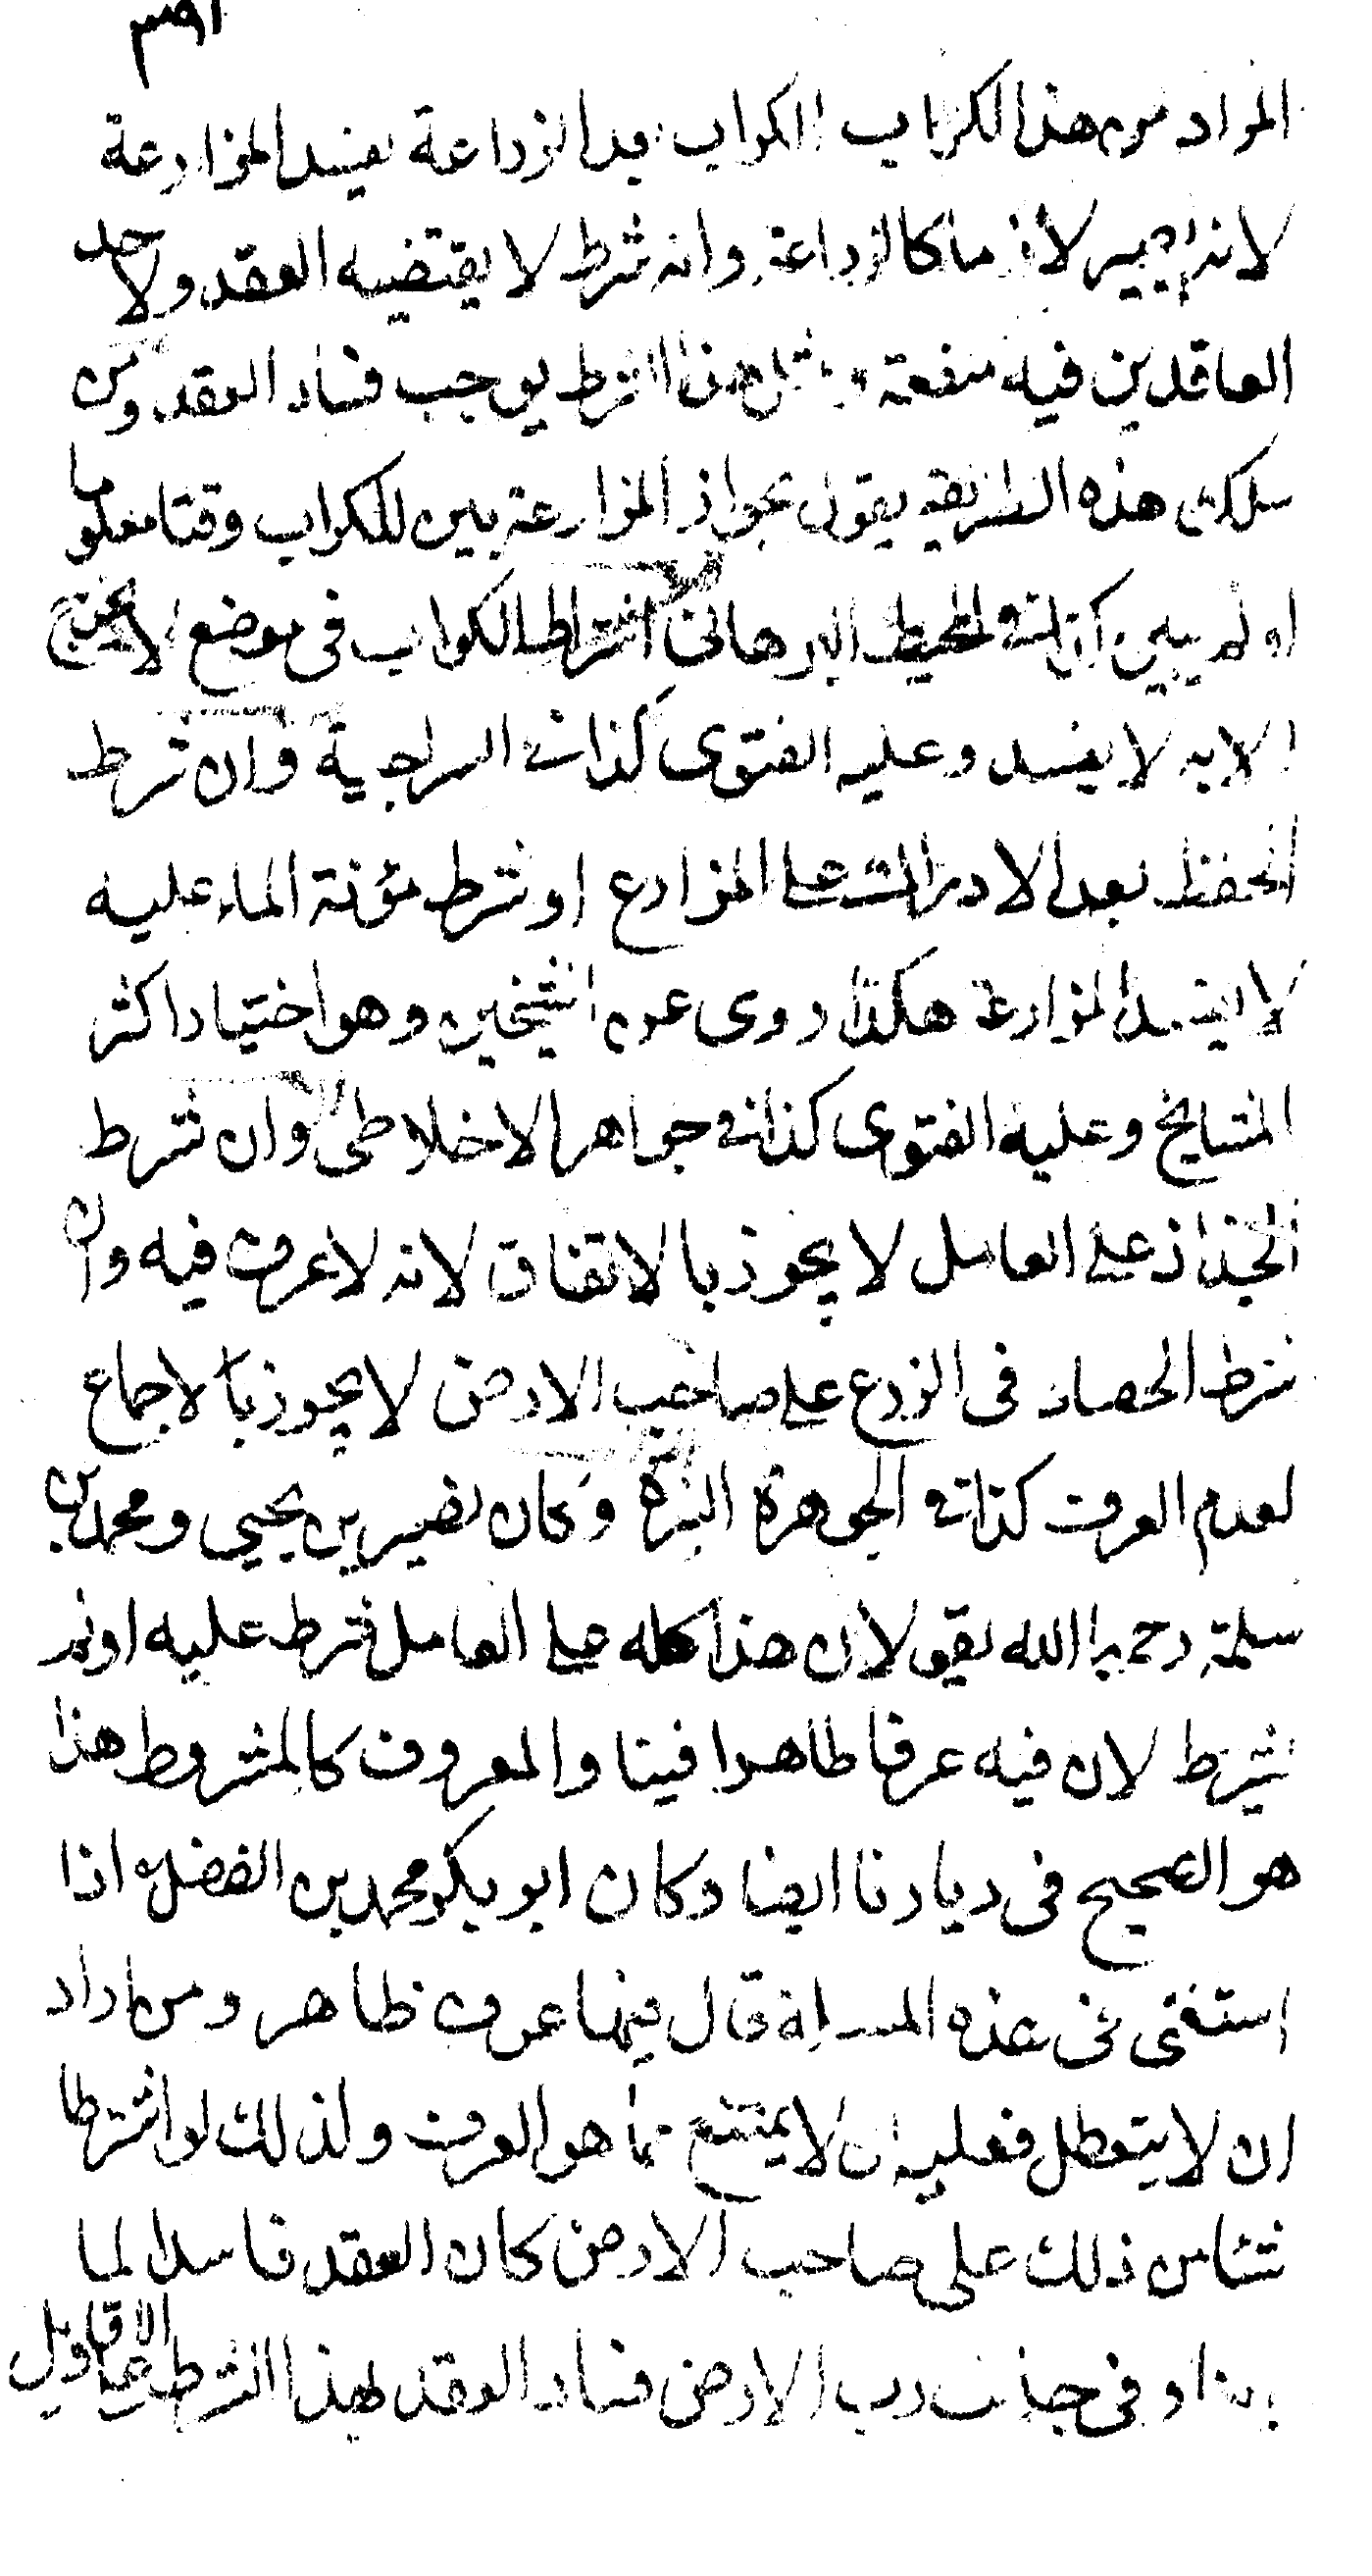 المراد من هذا الكراب الكراب بعد الزراعة يفسد المزارعة
لانه يصير لازما كالزراعة وانه شرط لا يقتضيه العقد ولاحد
العاقدين فيه منفعة ومثل هذا الشرط يوجب فساد العقد ومن
سلك هذه الطريقة يقول بجواز المزارعة بين للكراب وقتا معلوما
او لم يبين كذا في المحيط البرهاني اشتراط الكراب في موضع لا يخرج
الا به لا يفسد وعليه الفتوى كذا في السراجية وان شرط
الحفظ بعد الادراك على المزارع او شرط مؤنة الماء عليه
لا يفسد المزارعة هكذا روى عن الشيخين وهو اختيار اكثر
المشايخ وعليه الفتوى كذا في جواهر الاخلاطى وان شرط
الجذاذ على العامل لا يجوز بالاتفاق لانه لا عرف فيه وان
شرط الحصاد فى الزرع على صاحب الارض لا يجوز بالاجماع
لعدم العرف كذا في الجوهرة النيرة وكان نصير بن يحيى ومحمد بن
سلمة رحمهما الله يقولان هذا كله على العامل شرط عليه او لم
يشرط لان فيه عرفا ظاهرا فينا والمعروف كالمشروط هذا
هو الصحيح فى ديارنا ايضا وكان ابو بكر محمد بن الفضل اذا
استفتى فى هذه المسئلة قال فيها عرف ظاهر ومن اراد
ان لا يتعطل فعليه ان لا يمتنع عما هو العرف ولذلك لو اشترطا
شيئا من ذلك على صاحب الارض كان العقد فاسدا لما
بينا وفى جانب رب الارض فساد العقد لهذا الشرط على الاقاويل